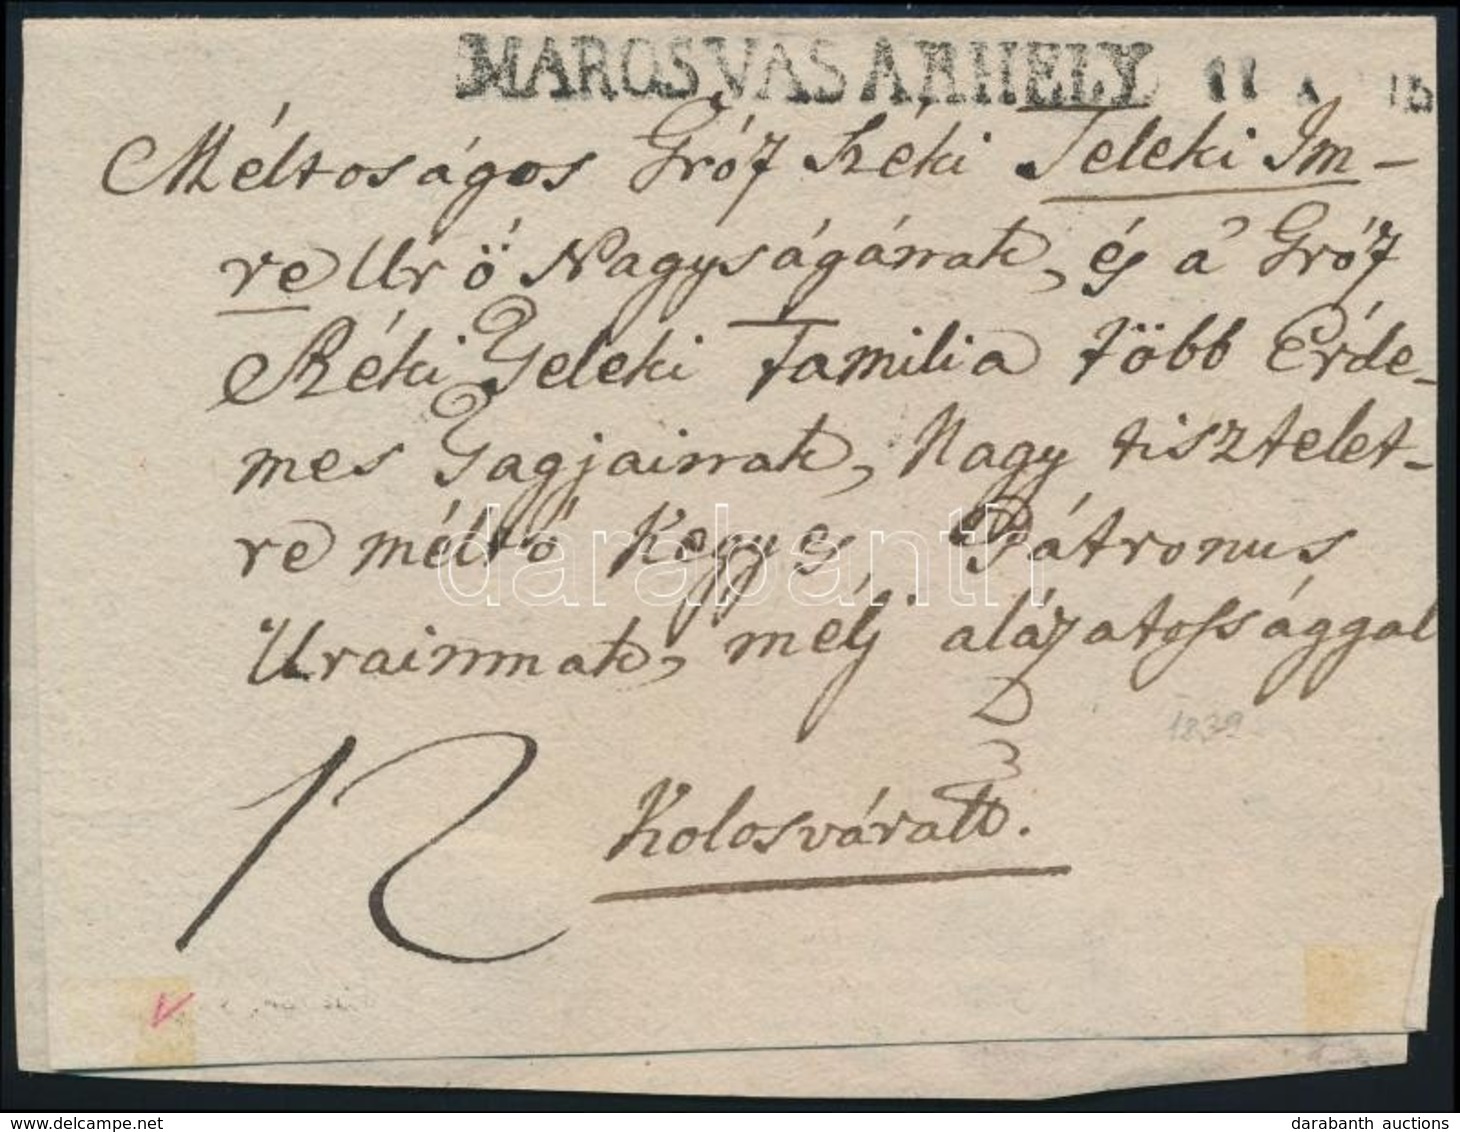 MAROSVASARHELY 11
Méltoságos Gróf Széki Teleki Im-
re Ur ö Nagyságának, és á Gróf
Széki Teleki Familia több Érde-
mes Tagjainak, Nagy tisztelet-
re méltó Kegyes Pátronus
Urainnak, mélj alázatossággal
1839
12 Kolosváratt.
darabanth
darabanth auctions